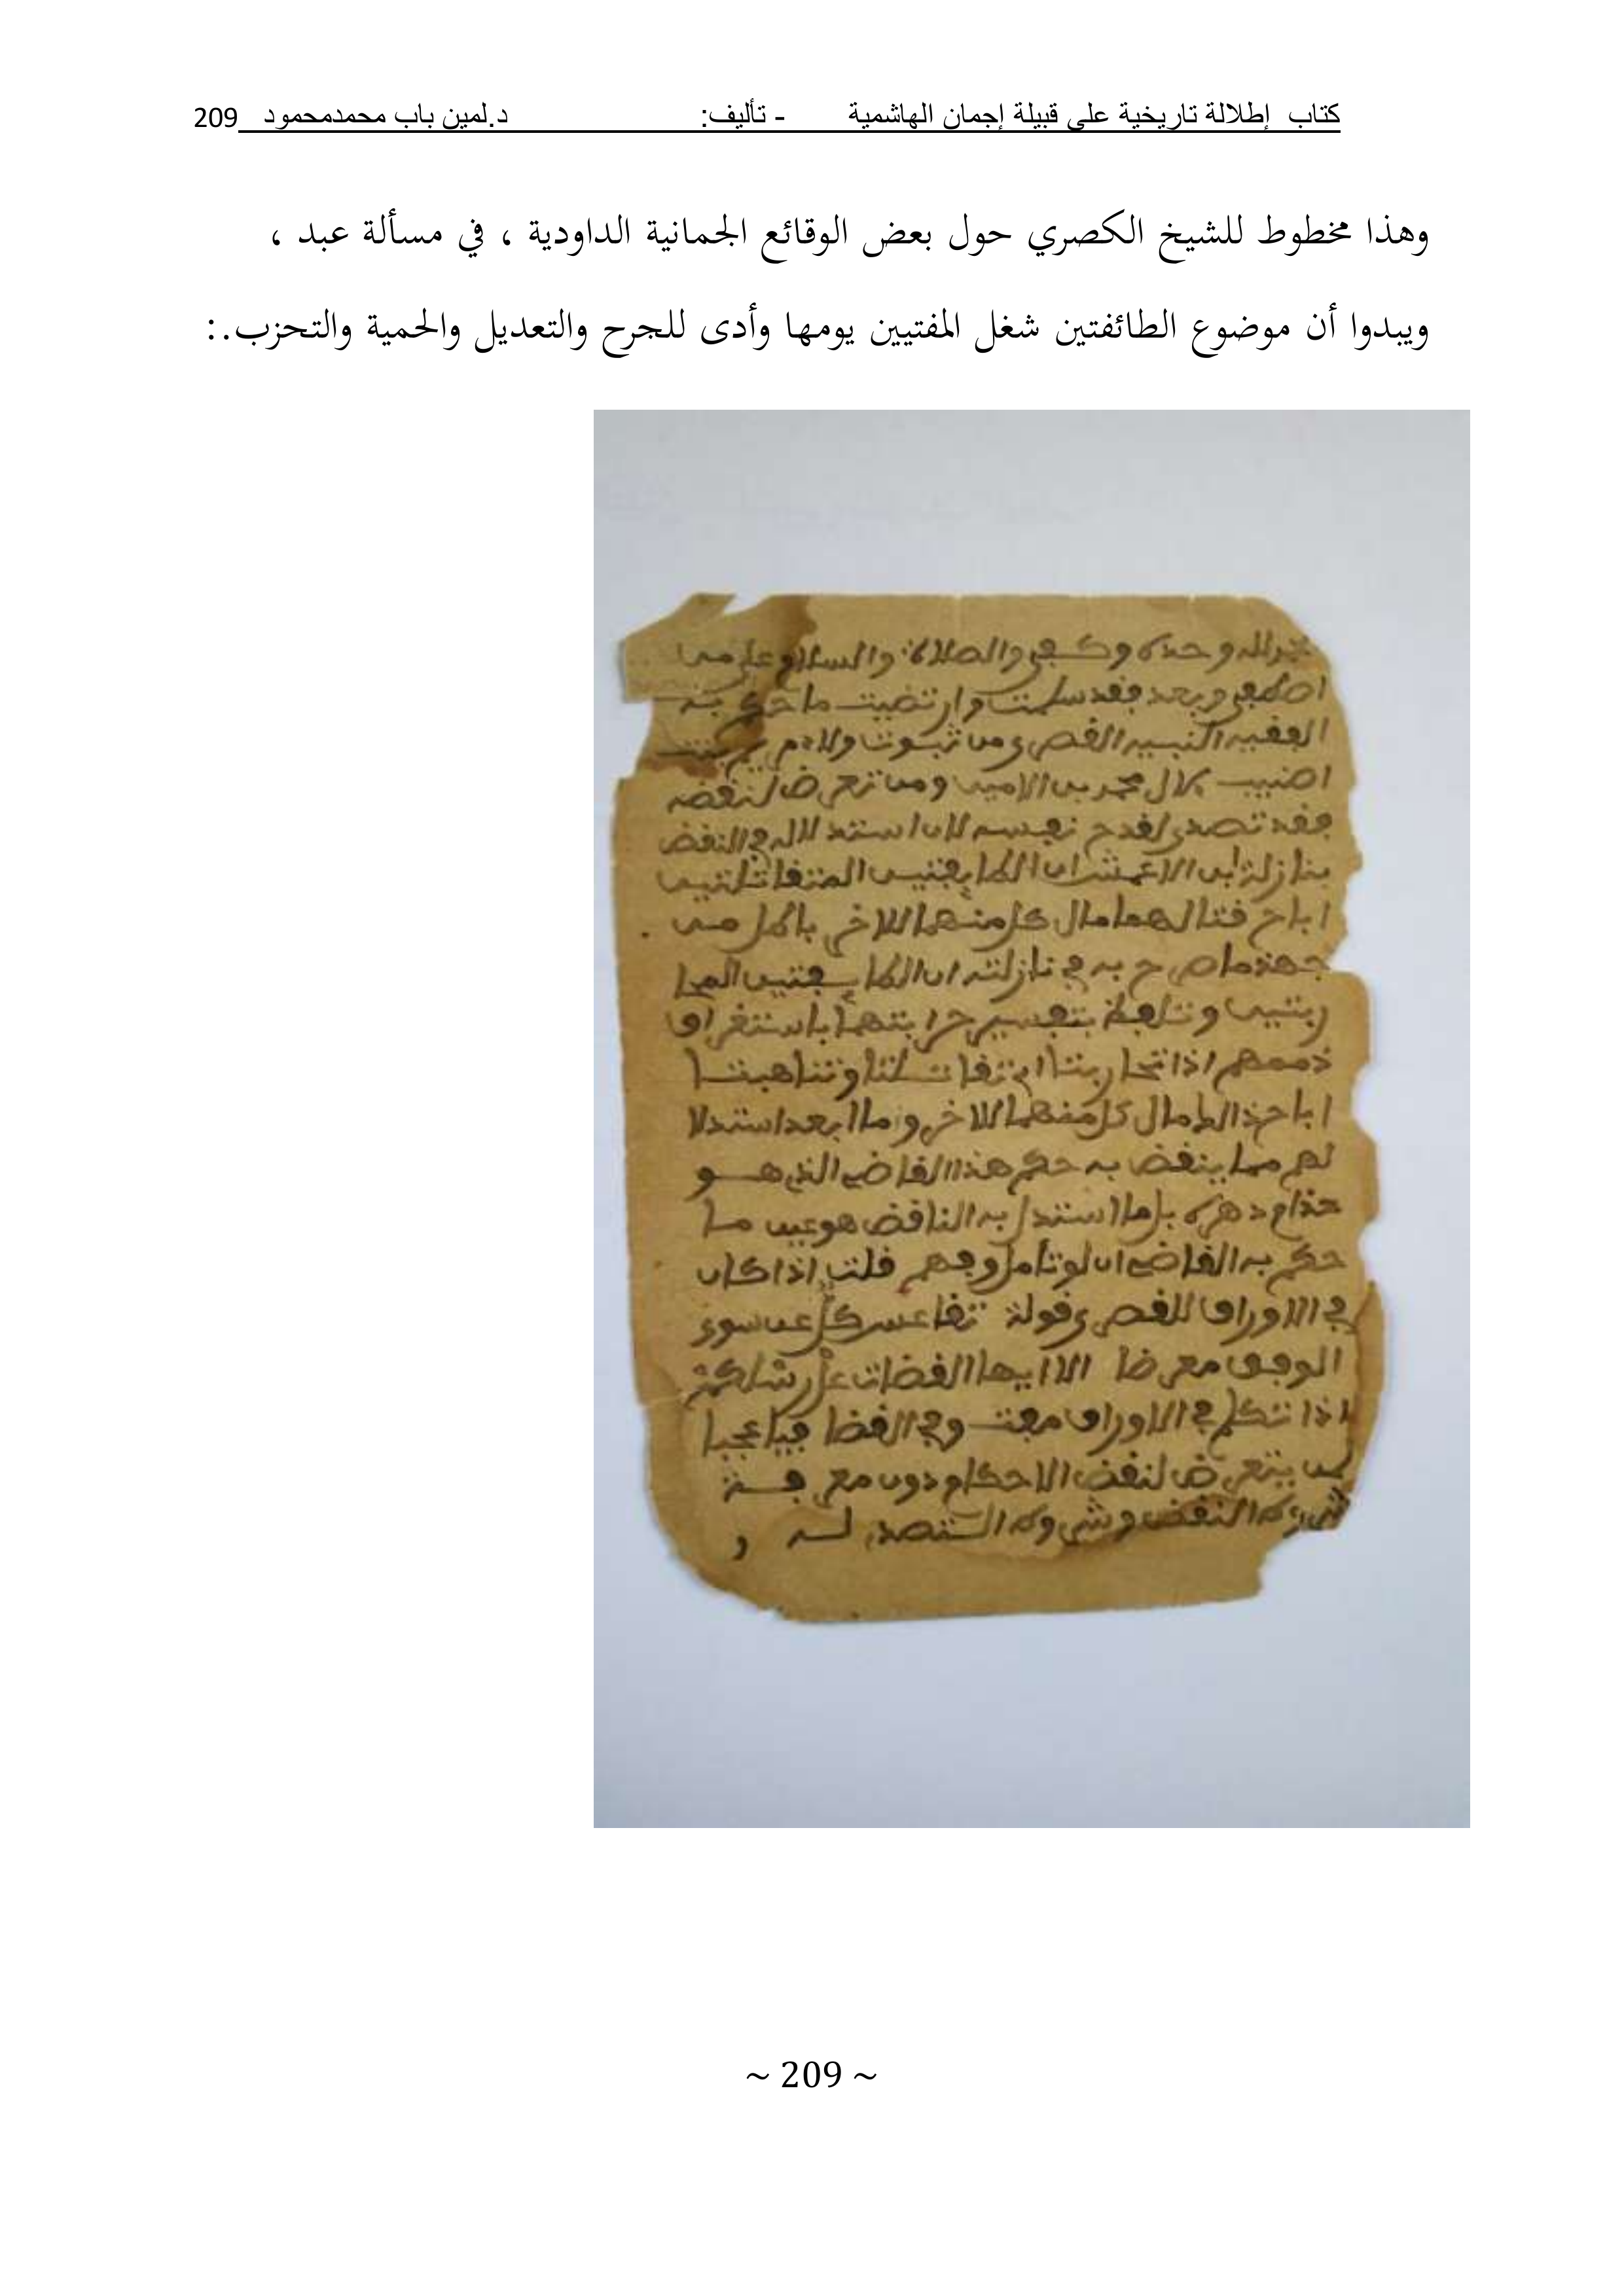 كتاب إطلالة تاريخية على قبيلة إجمان الهاشمية - تأليف: د.لمين باب محمدمحمود 209
وهذا مخطوط للشيخ الكصري حول بعض الوقائع الجمانية الداودية ، في مسألة عبد ،
ويبدوا أن موضوع الطائفتين شغل المفتيين يومها وأدى للجرح والتعديل والحمية والتحزب.:
لله وحده وكفى والصلاة والسلام على من
اصطفى وبعد فقد سلمت وارتضيت ما حكم به
الفقيه النبيه القصري من ثبوت ولاء
محمد بن الامين ومن تعرض لنقضه
فقد تصدى لقدح نفسه لان استدلاله في النقض
بنازلة ابن الاعمش ان الطايفتين المتقاتلتين
اباح قتالهما مال كل منهما للاخر باطل من
جهة ما صرح به في نازلته ان الطايفتين المحا
ربتين وتلفظ بتفسير حرابتهما باستغراق
ذممهم اذا تحاربتا اي تقاتلتا وتناهبتا
اباح ذالك مال كل منهما للاخر وما ابعد استدلا
لهم مما ينقض به حكم هذا القاضي الذي هو
حذام دهره بل ما استدل به الناقض هو عين ما
حكم به القاضي ان لو تأمل وفهم قلت اذا كان
في الاوراق للقصري قولة تقاعس كل عن سوى
الوفق معرضا الا ايها القضات على رشلكم
اذا تكلم في الاوراق مفت وفي القضا فيا عجبا
لمن يتعرض لنقض الاحكام دون معرفة
شروط النقض وشروط التصدي له
~ 209 ~